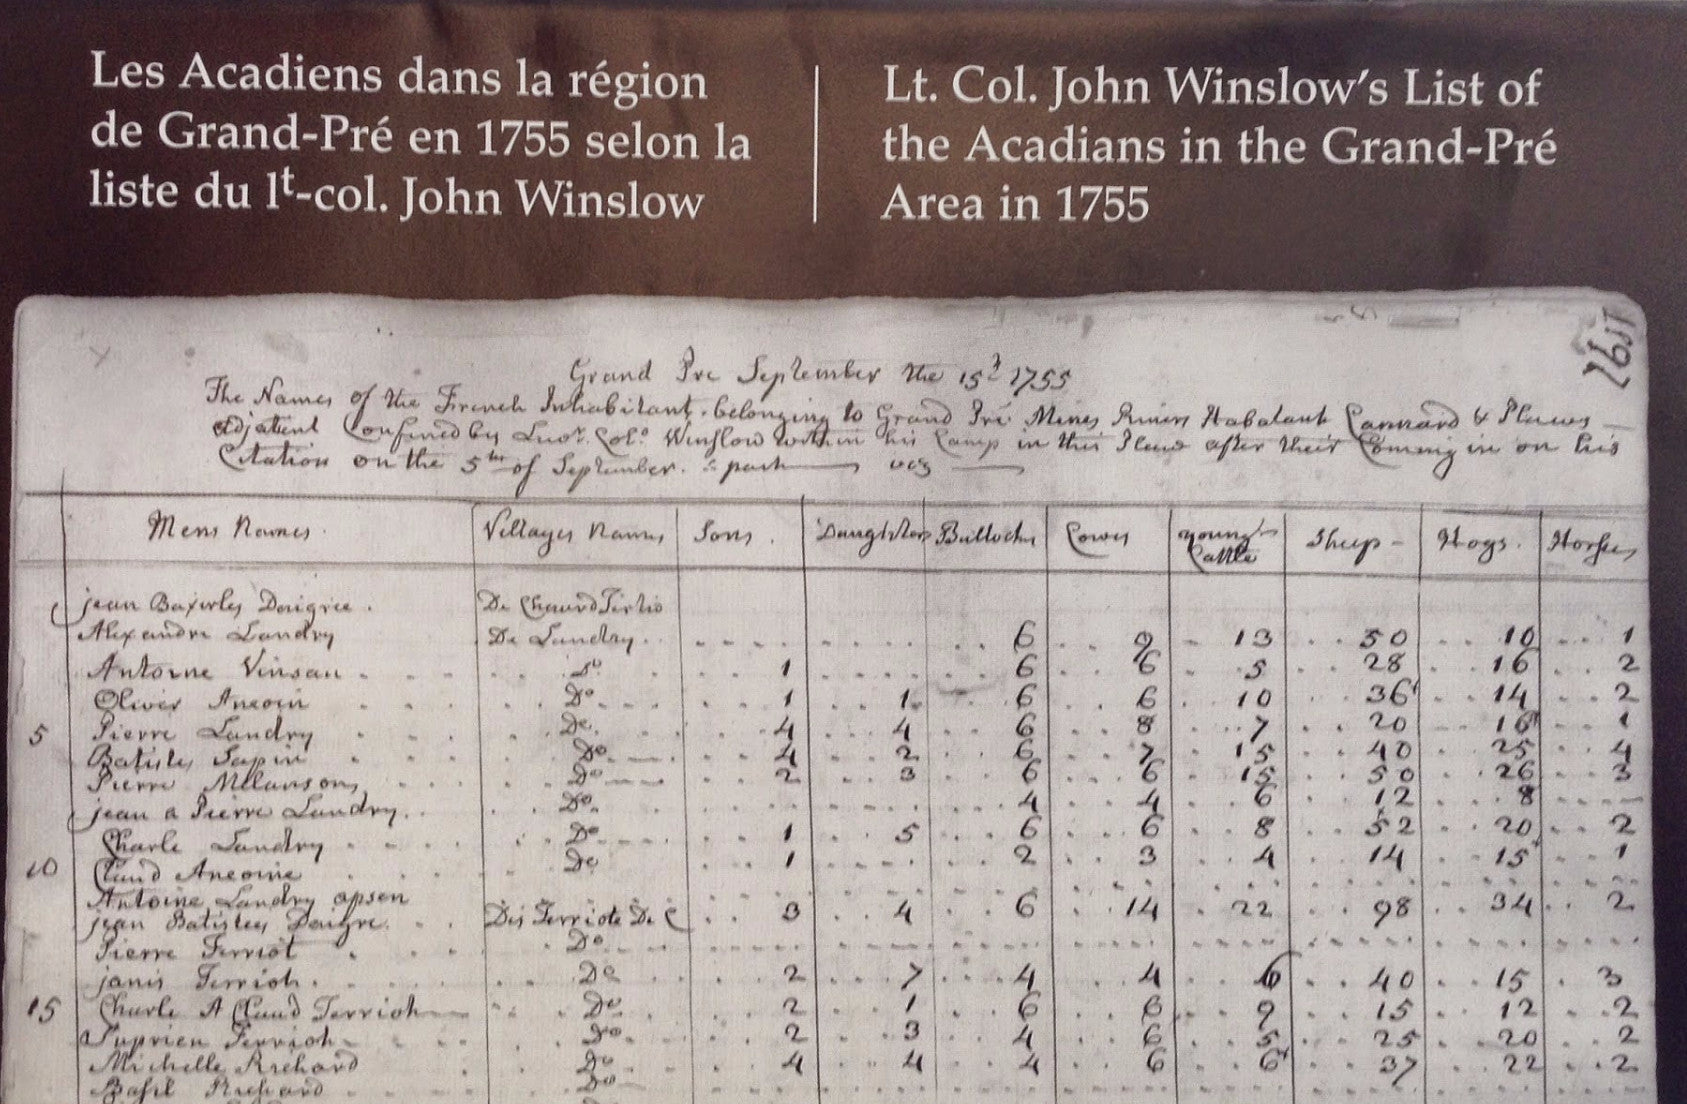 Les Acadiens dans la région
de Grand-Pré en 1755 selon la
liste du lt-col. John Winslow
Lt. Col. John Winslow's List of
the Acadians in the Grand-Pré
Area in 1755
Grand Pre September the 15d 1755
The Names of the French Inhabitants belonging to Grand Pré Mines Rivers Habatant Cannard &
adjatent Confined by Col. Winslow within his Camp in this Place after their Comming in on his
Citation on the 5th of September.
Mens Names Villages Names Sons Daughters Bullocks Cowes Young Cattle Sheep Hogs Horses
jean Daigree
Alexandre Landry De Landry 6 9 13 50 10 1
Antoine Vinsau 1 6 6 5 28 16 2
Oliver Ancoin Do 1 1 6 6 10 36 14 2
5 Pierre Landry Do 4 4 6 8 7 20 16 1
Batistes Sapin Do 4 2 6 7 15 40 25 4
Pierre Melanson Do 2 3 6 6 15 50 26 3
jean a Pierre Landry Do 4 4 6 12 8
Charle Landry Do 1 5 6 6 8 52 20 2
10 Claud Ancoine Do 1 2 3 4 14 15 1
Antoine Landry
jean Batistes Daigre Des Terriote De C 3 4 6 14 22 98 34 2
Pierre Terriot Do
janis Terrioh Do 2 7 4 4 6 40 15 3
15 Charle A Claud Terrioh Do 2 1 6 6 9 15 12 2
Suprien Terrioh Do 2 3 4 6 5 25 20 2
Michelle Richard Do 4 4 4 6 6 37 22 2
Basil Richard Do